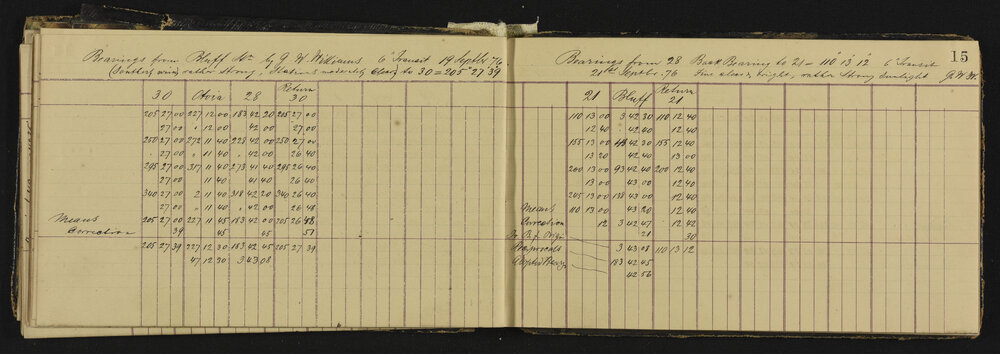 Bearings from Bluff Stn by G. W. Williams 6" Transit 19 Septbr '76
(Southerly wind rather strong, Stations moderately clear) to 30 = 205° 27' 39
30 Otoia 28 Return 30
205 27 00 227 12 00 183 42 20 205 27 00
27 00 " 12 00 42 00 27 00
250 27 00 272 11 40 228 42 00 250 27 00
27 00 " 11 40 " 42 00 26 40
295 27 00 317 11 40 273 41 40 295 26 40
27 00 11 40 41 40 26 40
340 27 00 2 11 40 318 42 20 340 26 40
27 00 " 11 40 " 42 00 26 48
Means 205 27 00 227 11 45 183 42 00 205 26 48
Correction 39 45 45 51
205 27 39 227 12 30 183 42 45 205 27 39
47 12 30 3 43 08
15
Bearings from 28 Back Bearing to 21 = 110° 13' 12" 6" Transit
21st Septbr '76 Fine clear, bright, rather strong sunlight G.W.W.
21 Bluff Return 21
110 13 00 3 42 30 110 12 40
12 40 " 42 40 12 40
155 13 00 48 42 20 155 12 40
13 20 42 40 13 00
200 13 00 93 42 40 200 12 40
13 00 43 00 12 40
245 13 00 138 43 00 12 40
43 20 12 40
Means 110 13 00 3 42 47 12 42
Correction 12 21 30
Reciprocals 3 43 08 110 13 12
Adopted Bearg 183 42 45
42 56